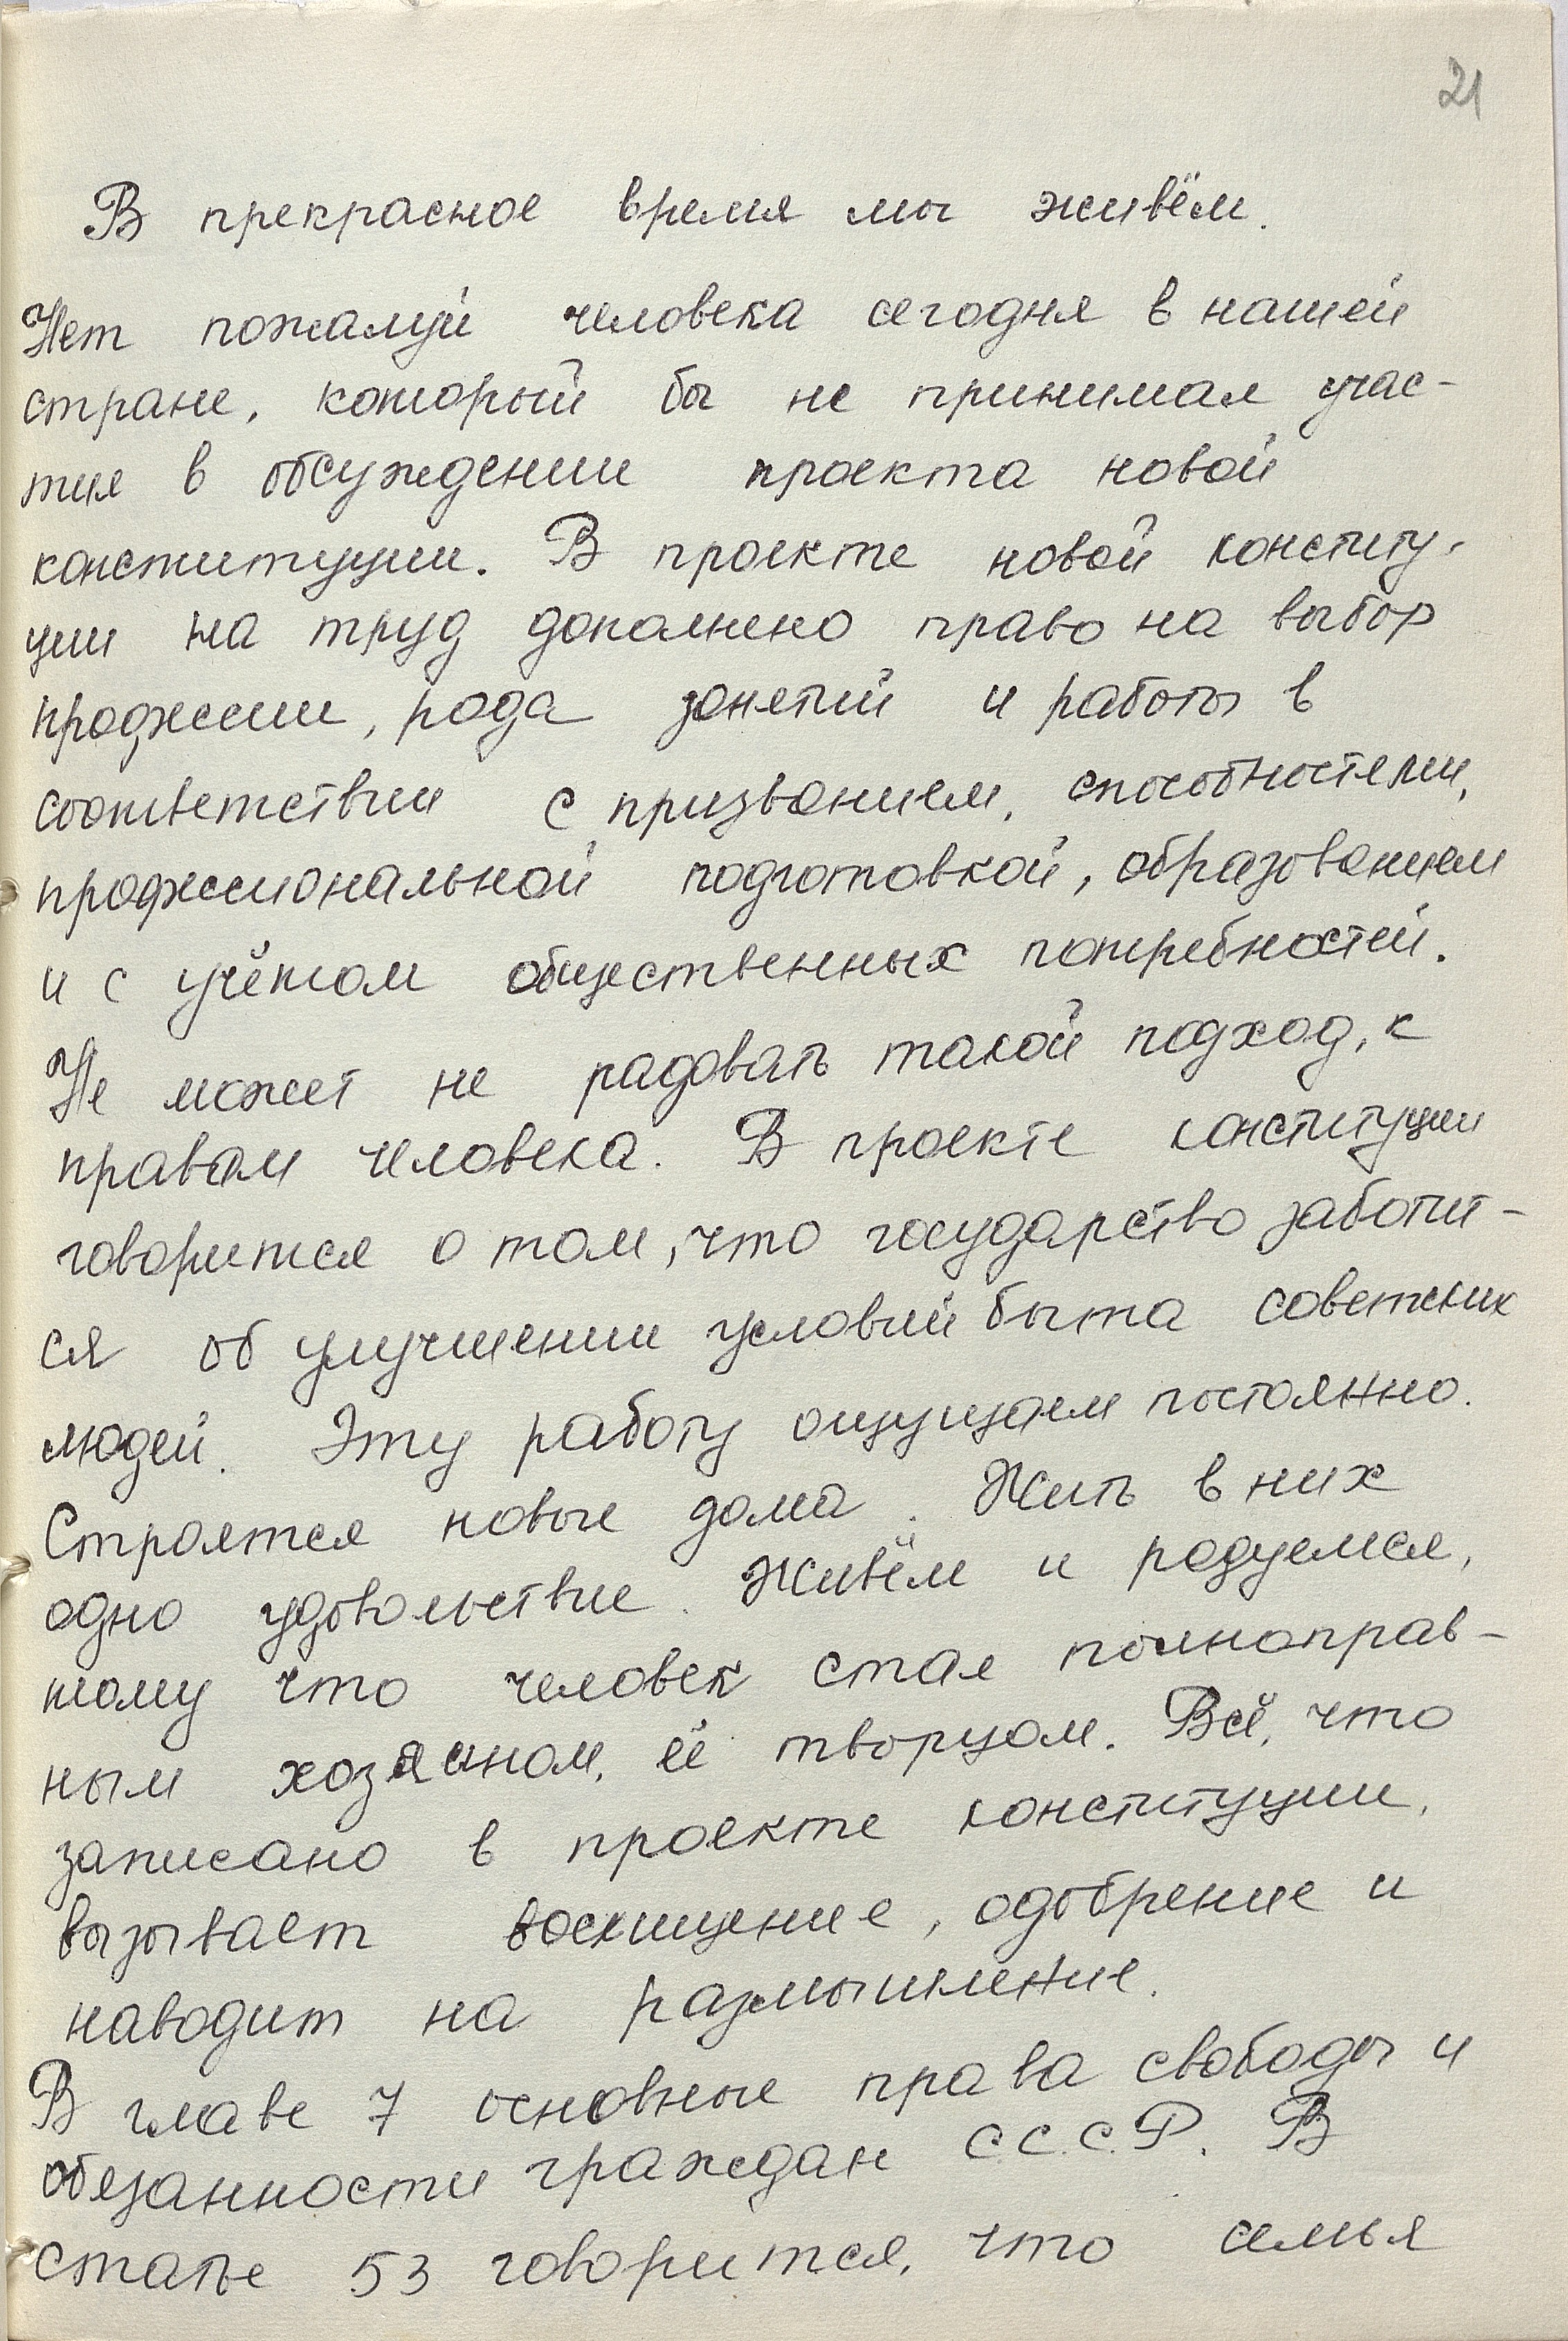 21
В прекрасное время мы живём.
Нет пожалуй человека сегодня в нашей
стране, который бы не принимал учас-
тия в обсуждении проекта новой
конституции. В проекте новой конститу-
ции на труд дополнено право на выбор
профессии, рода занятий и работы в
соответствии с призванием, способностями,
профессиональной подготовкой, образованием
и с учётом общественных потребностей.
Не может не радовать такой подход, к
правам человека. В проекте конституции
говорится о том, что государство заботит-
ся об улучшении условий быта советских
людей. Эту работу ощущаем постоянно.
Строятся новые дома. Жить в них
одно удовольствие. Живём и радуемся,
тому что человек стал полноправ-
ным хозяином, её творцом. Всё, что
записано в проекте конституции,
вызывает восхищение, одобрение и
наводит на размышление.
В главе 7 основные права свободы и
обязанности граждан С.С.С.Р. В
статье 53 говорится, что семья